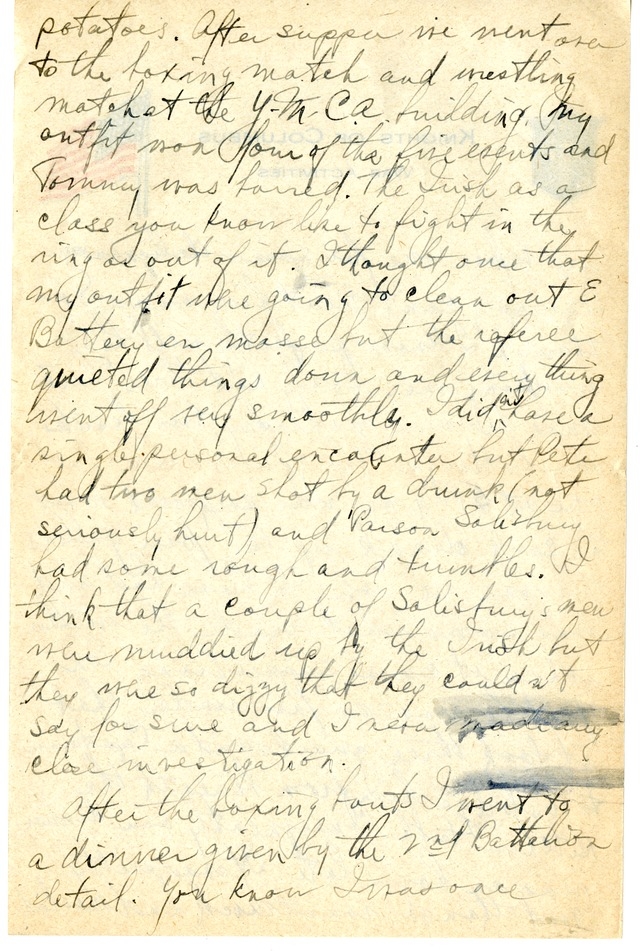 potatoes. After supper we went over
to the boxing match and wrestling
match at the Y.M.C.A. building. My
outfit won four of the five events and
Tommy was barred. The Irish as a
class you know like to fight in the
ring as out of it. I thought once that
my outfit were going to clean out E
Battery en masse but the referee
quieted things down and everything
went off very smoothly. I didn't have a
single personal encounter but Pete
had two men shot by a drunk (not
seriously hurt) and Parson Salisbury
had some rough and tumbles. I
think that a couple of Salisbury's men
were muddied up by the Irish but
they were so dizzy that they couldn't
say for sure and I never made any
close investigation.
After the boxing bouts I went to
a dinner given by the 2nd Battalion
detail. You know I was once